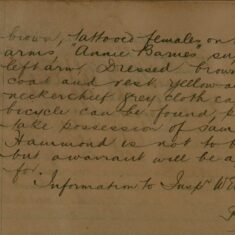 brown, tattooed females on
arms "Annie Barnes" su
left arm, Dressed brown
coat and vest, yellow a
neckerchief, grey cloth ca
bicycle can be found, p
take possession of sam
Hammond is not to b
but a warrant will be a
for.
Information to Inspr W E